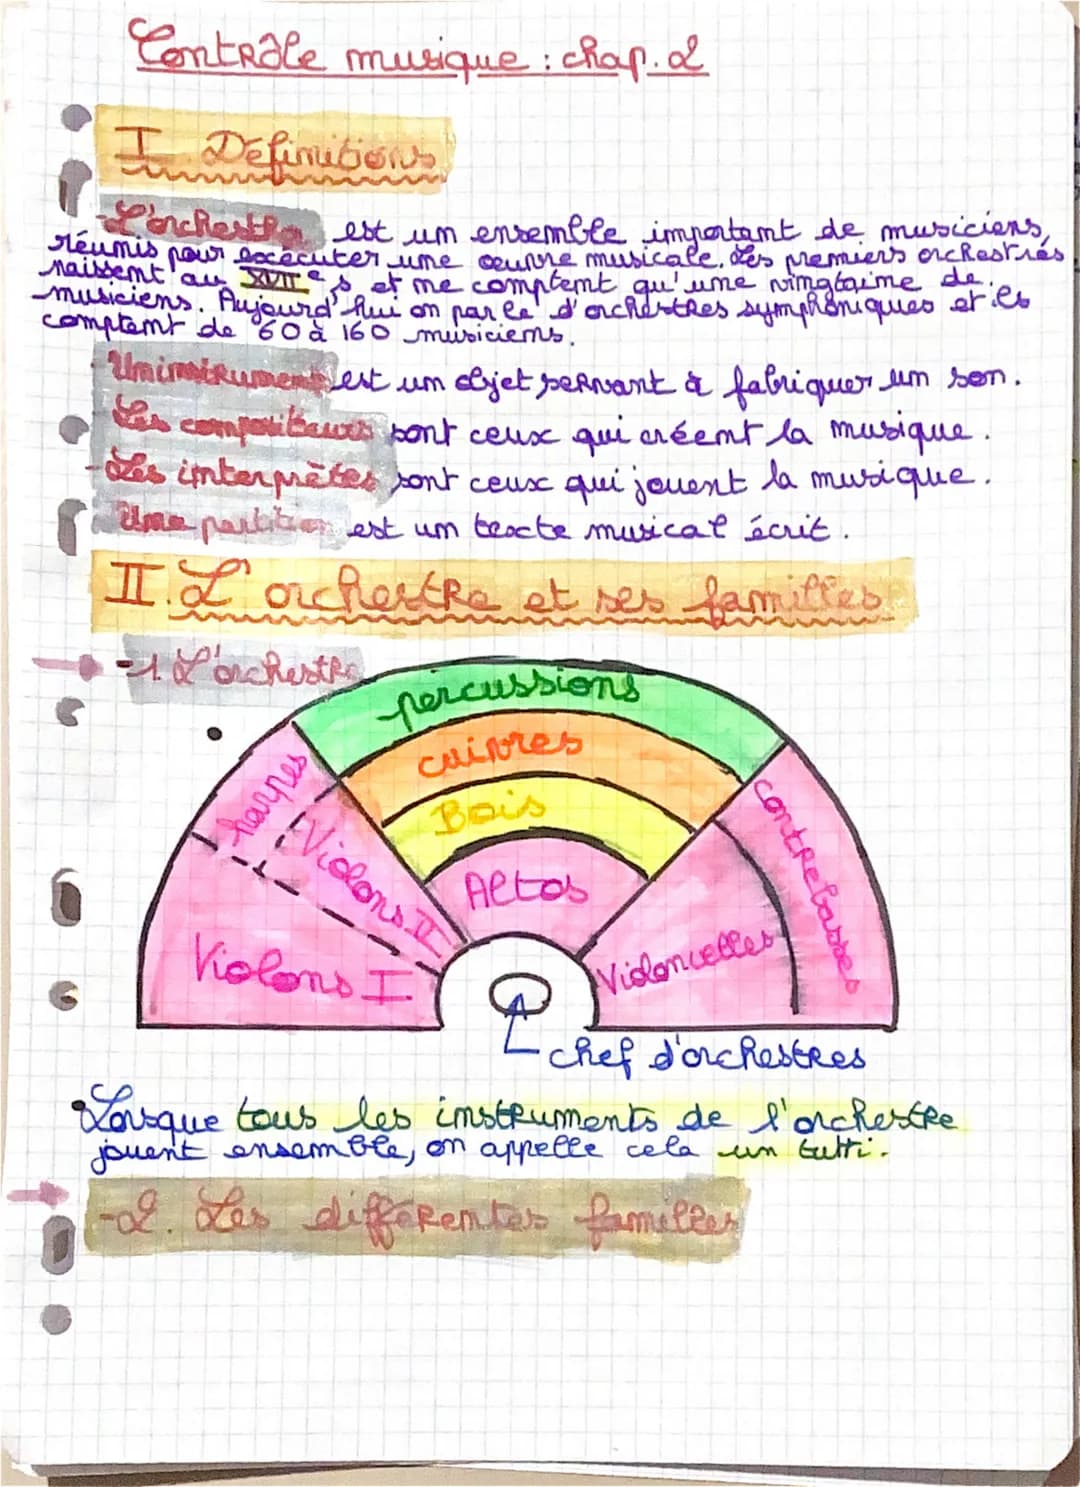 Contrôle musique : chap. 2
I. Définitions
-L'orchestre est un ensemble important de musiciens,
réunis pour exécuter une œuvre musicale. Les premiers orchestres
naissent au XVIIe s et ne comptent qu'une vingtaine de
musiciens. Aujourd'hui on parle d'orchestres symphoniques et les
comptent de 60 à 160 musiciens.
Un instrument est un objet servant à fabriquer un son.
Les compositeurs sont ceux qui créent la musique.
-Les interprètes sont ceux qui jouent la musique.
Une partition est un texte musical écrit.
II. L'orchestre et ses familles
-1. L'orchestre
percussions
cuivres
Bois
Altos
harpes
Violons II
Violons I
contrebasses
Violoncelles
chef d'orchestres
•Lorsque tous les instruments de l'orchestre
jouent ensemble, on appelle cela un tutti.
-2. Les différentes familles